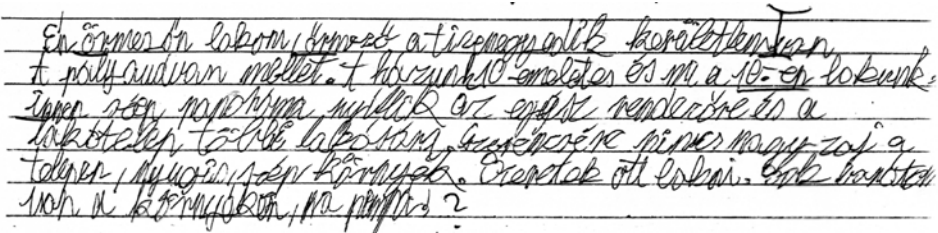 Én őrmezőn lakom, őrmező a tizenegyedik kerületben van
A pályaudvan mellet. A házunk 10 emeletes és mi a 10-en lakunk.
innen szép panoráma nyillik az egész rendezőre és a
lakótelep többi lakására. Szerencsére nincs nagy zaj a
telepen, nyugis, szép környék. Szeretek ott lakni. Sok barátom
van a környéken,